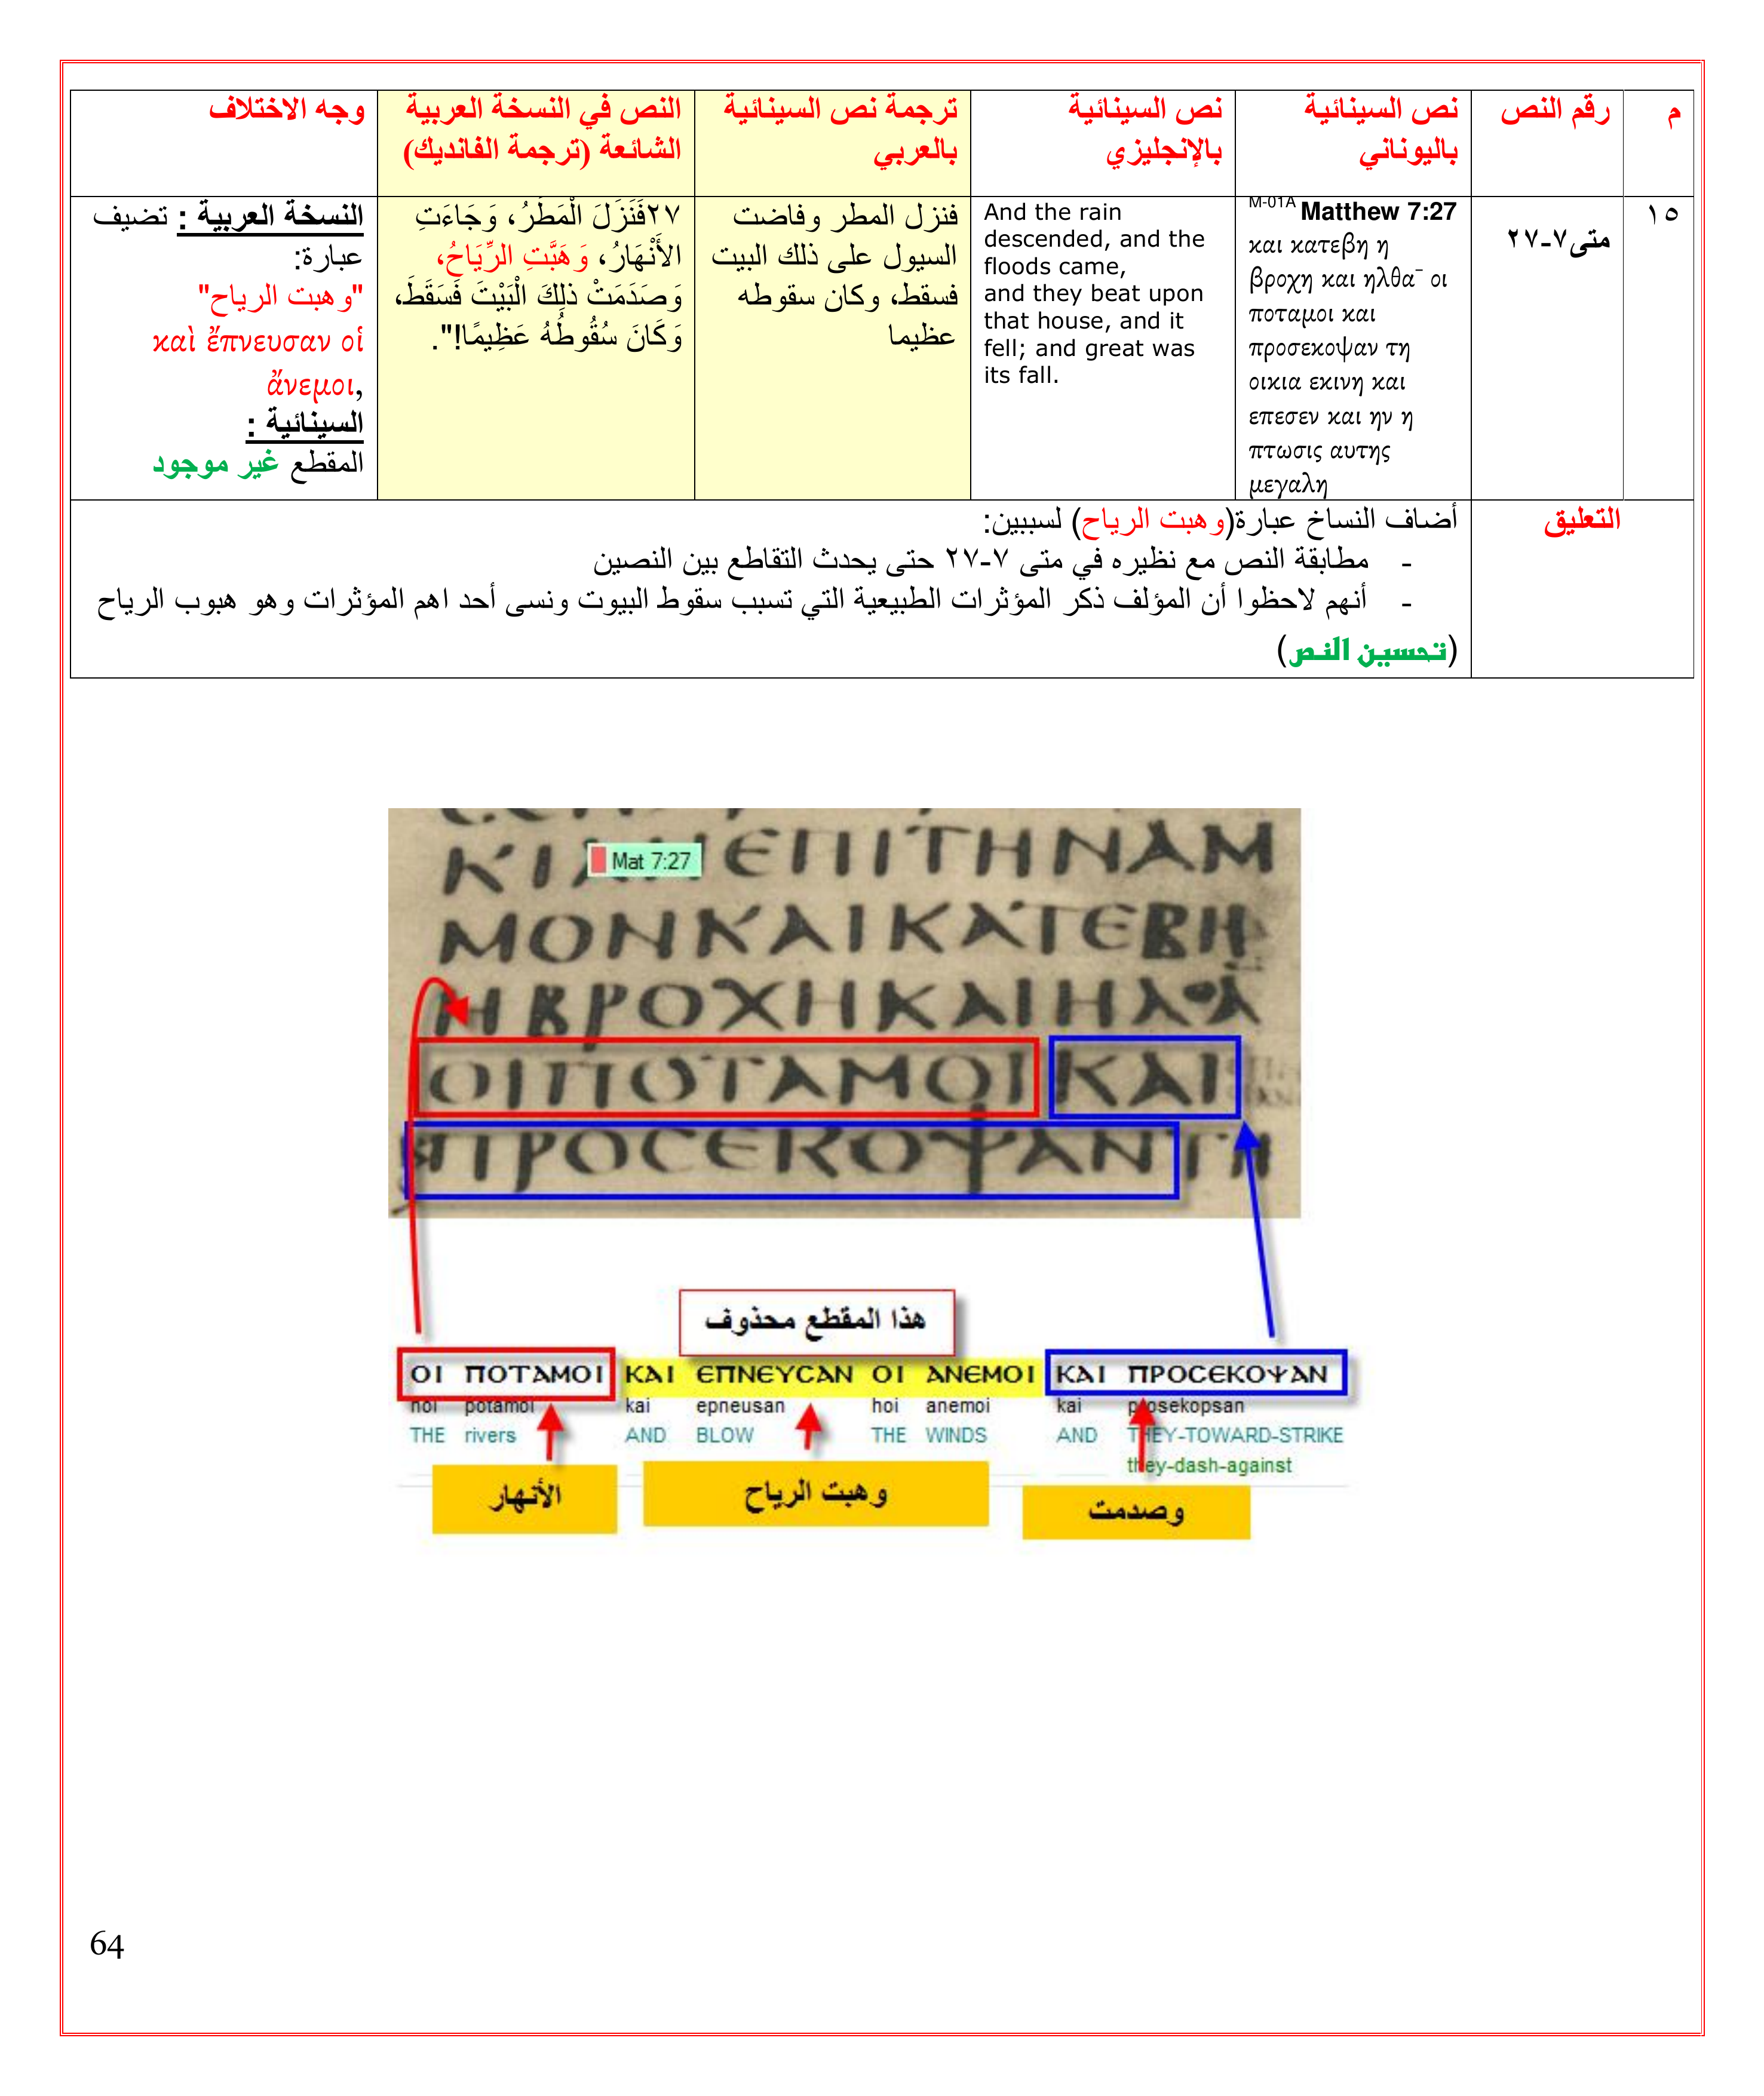 م
رقم النص
نص السينائية
باليوناني
نص السينائية
بالإنجليزي
ترجمة نص السينائية
بالعربي
النص في النسخة العربية
الشائعة (ترجمة الفانديك)
وجه الاختلاف
١٥
متى٧-٢٧
M-01A Matthew 7:27
και κατεβη η
βροχη και ηλθα¯ οι
ποταμοι και
προσεκοψαν τη
οικια εκινη και
επεσεν και ην η
πτωσις αυτης
μεγαλη
And the rain
descended, and the
floods came,
and they beat upon
that house, and it
fell; and great was
its fall.
فنزل المطر وفاضت
السيول على ذلك البيت
فسقط، وكان سقوطه
عظيما
٢٧فَنَزَلَ الْمَطَرُ، وَجَاءَتِ
الأَنْهَارُ، وَهَبَّتِ الرِّيَاحُ،
وَصَدَمَتْ ذلِكَ الْبَيْتَ فَسَقَطَ،
وَكَانَ سُقُوطُهُ عَظِيمًا!".
النسخة العربية : تضيف
عبارة:
"وهبت الرياح"
καὶ ἔπνευσαν οἱ
ἄνεμοι,
السينائية :
المقطع غير موجود
التعليق
أضاف النساخ عبارة(وهبت الرياح) لسببين:
- مطابقة النص مع نظيره في متى ٧-٢٧ حتى يحدث التقاطع بين النصين
- أنهم لاحظوا أن المؤلف ذكر المؤثرات الطبيعية التي تسبب سقوط البيوت ونسى أحد اهم المؤثرات وهو هبوب الرياح
(تحسين النص)
Mat 7:27
ΕΠΙΤΗΝΑΜ
ΜΟΝΚΑΙΚΑΤΕΒΗ
ΗΒΡΟΧΗΚΑΙΗΛΘΑ
ΟΙΠΟΤΑΜΟΙΚΑΙ
ΠΡΟCΕΚΟΨΑΝΤΗ
هذا المقطع محذوف
ΟΙ ΠΟΤΑΜΟΙ ΚΑΙ ΕΠΝΕΥCΑΝ ΟΙ ΑΝΕΜΟΙ ΚΑΙ ΠΡΟCΕΚΟΨΑΝ
hoi potamoi kai epneusan hoi anemoi kai prosekopsan
THE rivers AND BLOW THE WINDS AND THEY-TOWARD-STRIKE
they-dash-against
الأنهار
وهبت الرياح
وصدمت
64